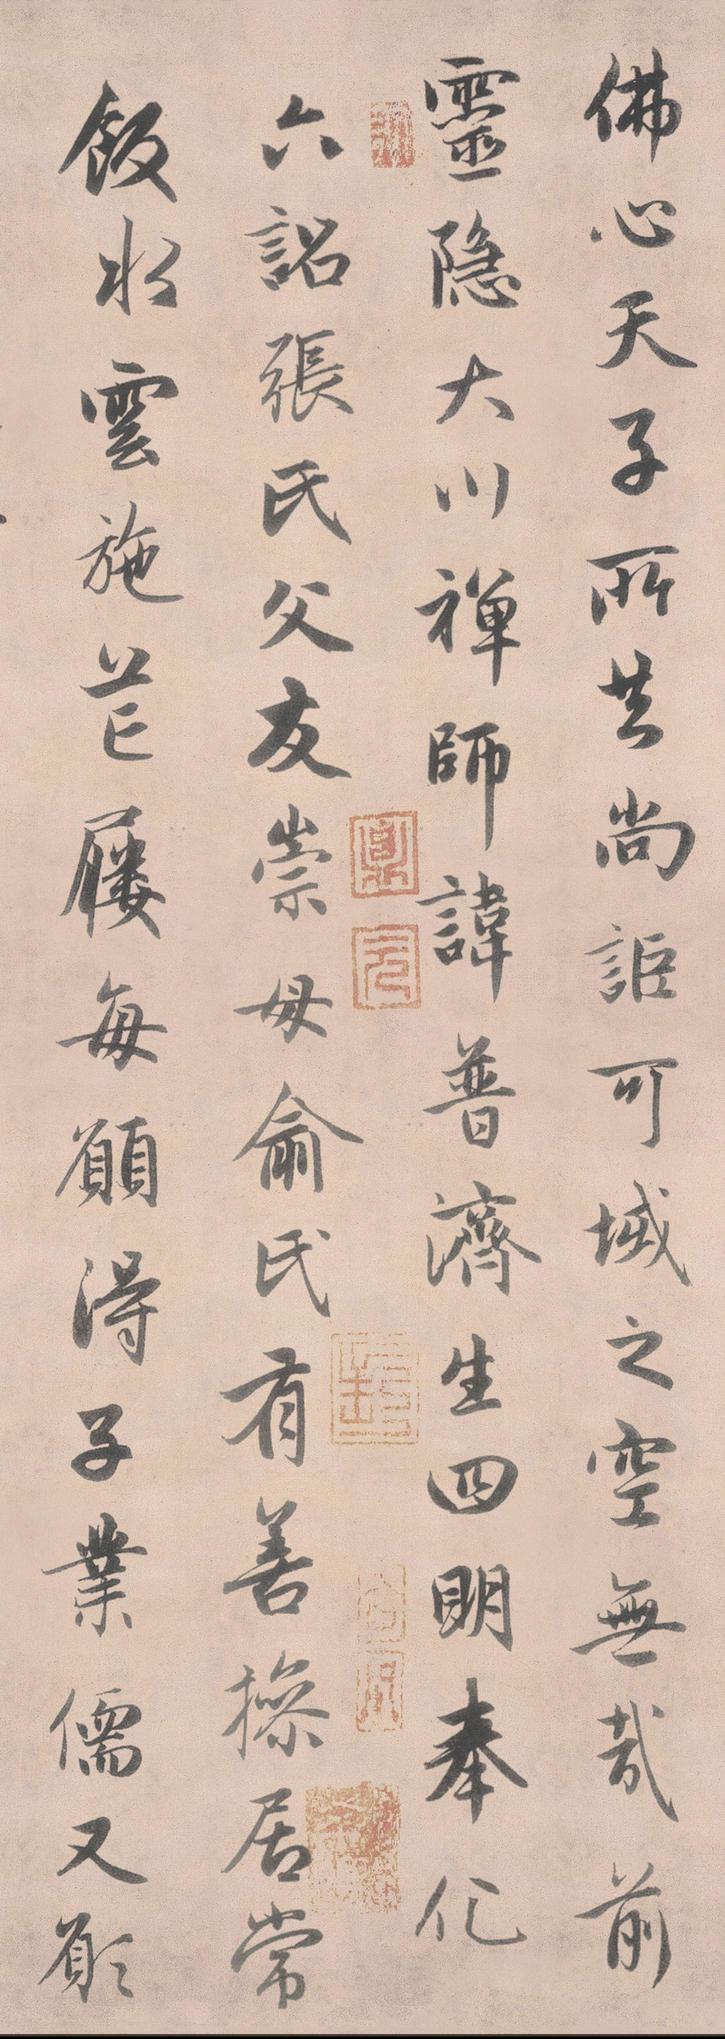 佛心天子所共尚詎可域之空無哉前
靈隐大川禅師諱普濟生四明奉化
六詔張氏父友崇母俞氏有善操居常
飯水雲施芒屨每願得子業儒又願